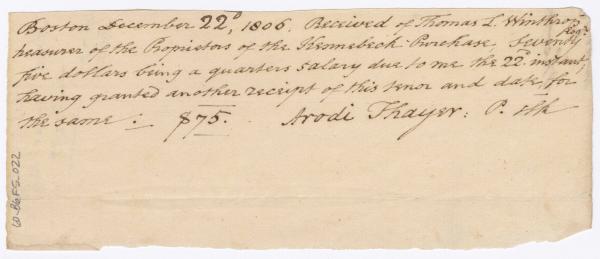 Boston December 22d, 1806. Received of Thomas L. Winthrop Esqr.
treasurer of the Propietors of the Kennebeck Purchase, Seventy
five dollars being a quarters salary due to me the 22d. instant,
having granted another receipt of this tenor and date, for
the same :- $75. Arodi Thayer: P. Clk